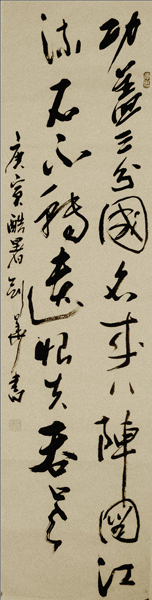 功盖三分國名成八陣图江
流石不轉遺恨失吞吴
庚寅酷暑剑華書